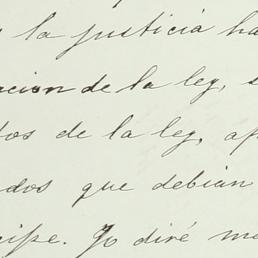 y la justicia ha
acion de la ley, s
tos de la ley, ap
dos que debian
cipe. Yo diré me